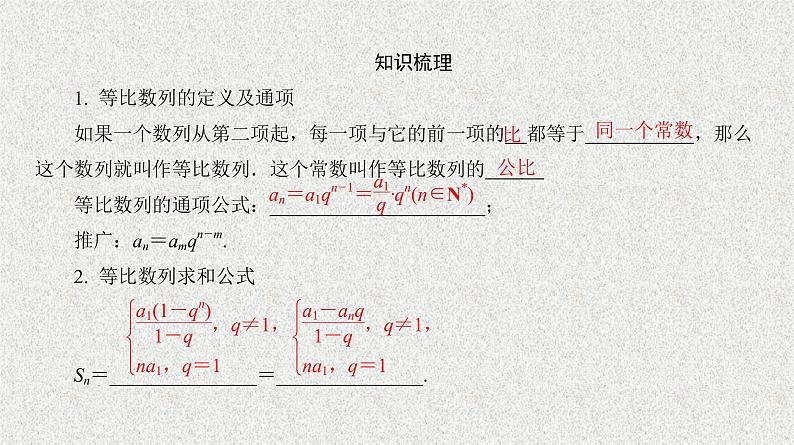 知识梳理
1. 等比数列的定义及通项
如果一个数列从第二项起，每一项与它的前一项的比都等于同一个常数，那么
这个数列就叫作等比数列．这个常数叫作等比数列的公比
等比数列的通项公式：aₙ＝a₁qⁿ⁻¹＝a₁/q·qⁿ(n∈N*)；
推广：aₙ＝aₘqⁿ⁻ᵐ.
2. 等比数列求和公式
Sₙ＝{a₁(1－qⁿ)/(1－q)，q≠1，na₁，q＝1＝{(a₁－aₙq)/(1－q)，q≠1，na₁，q＝1.